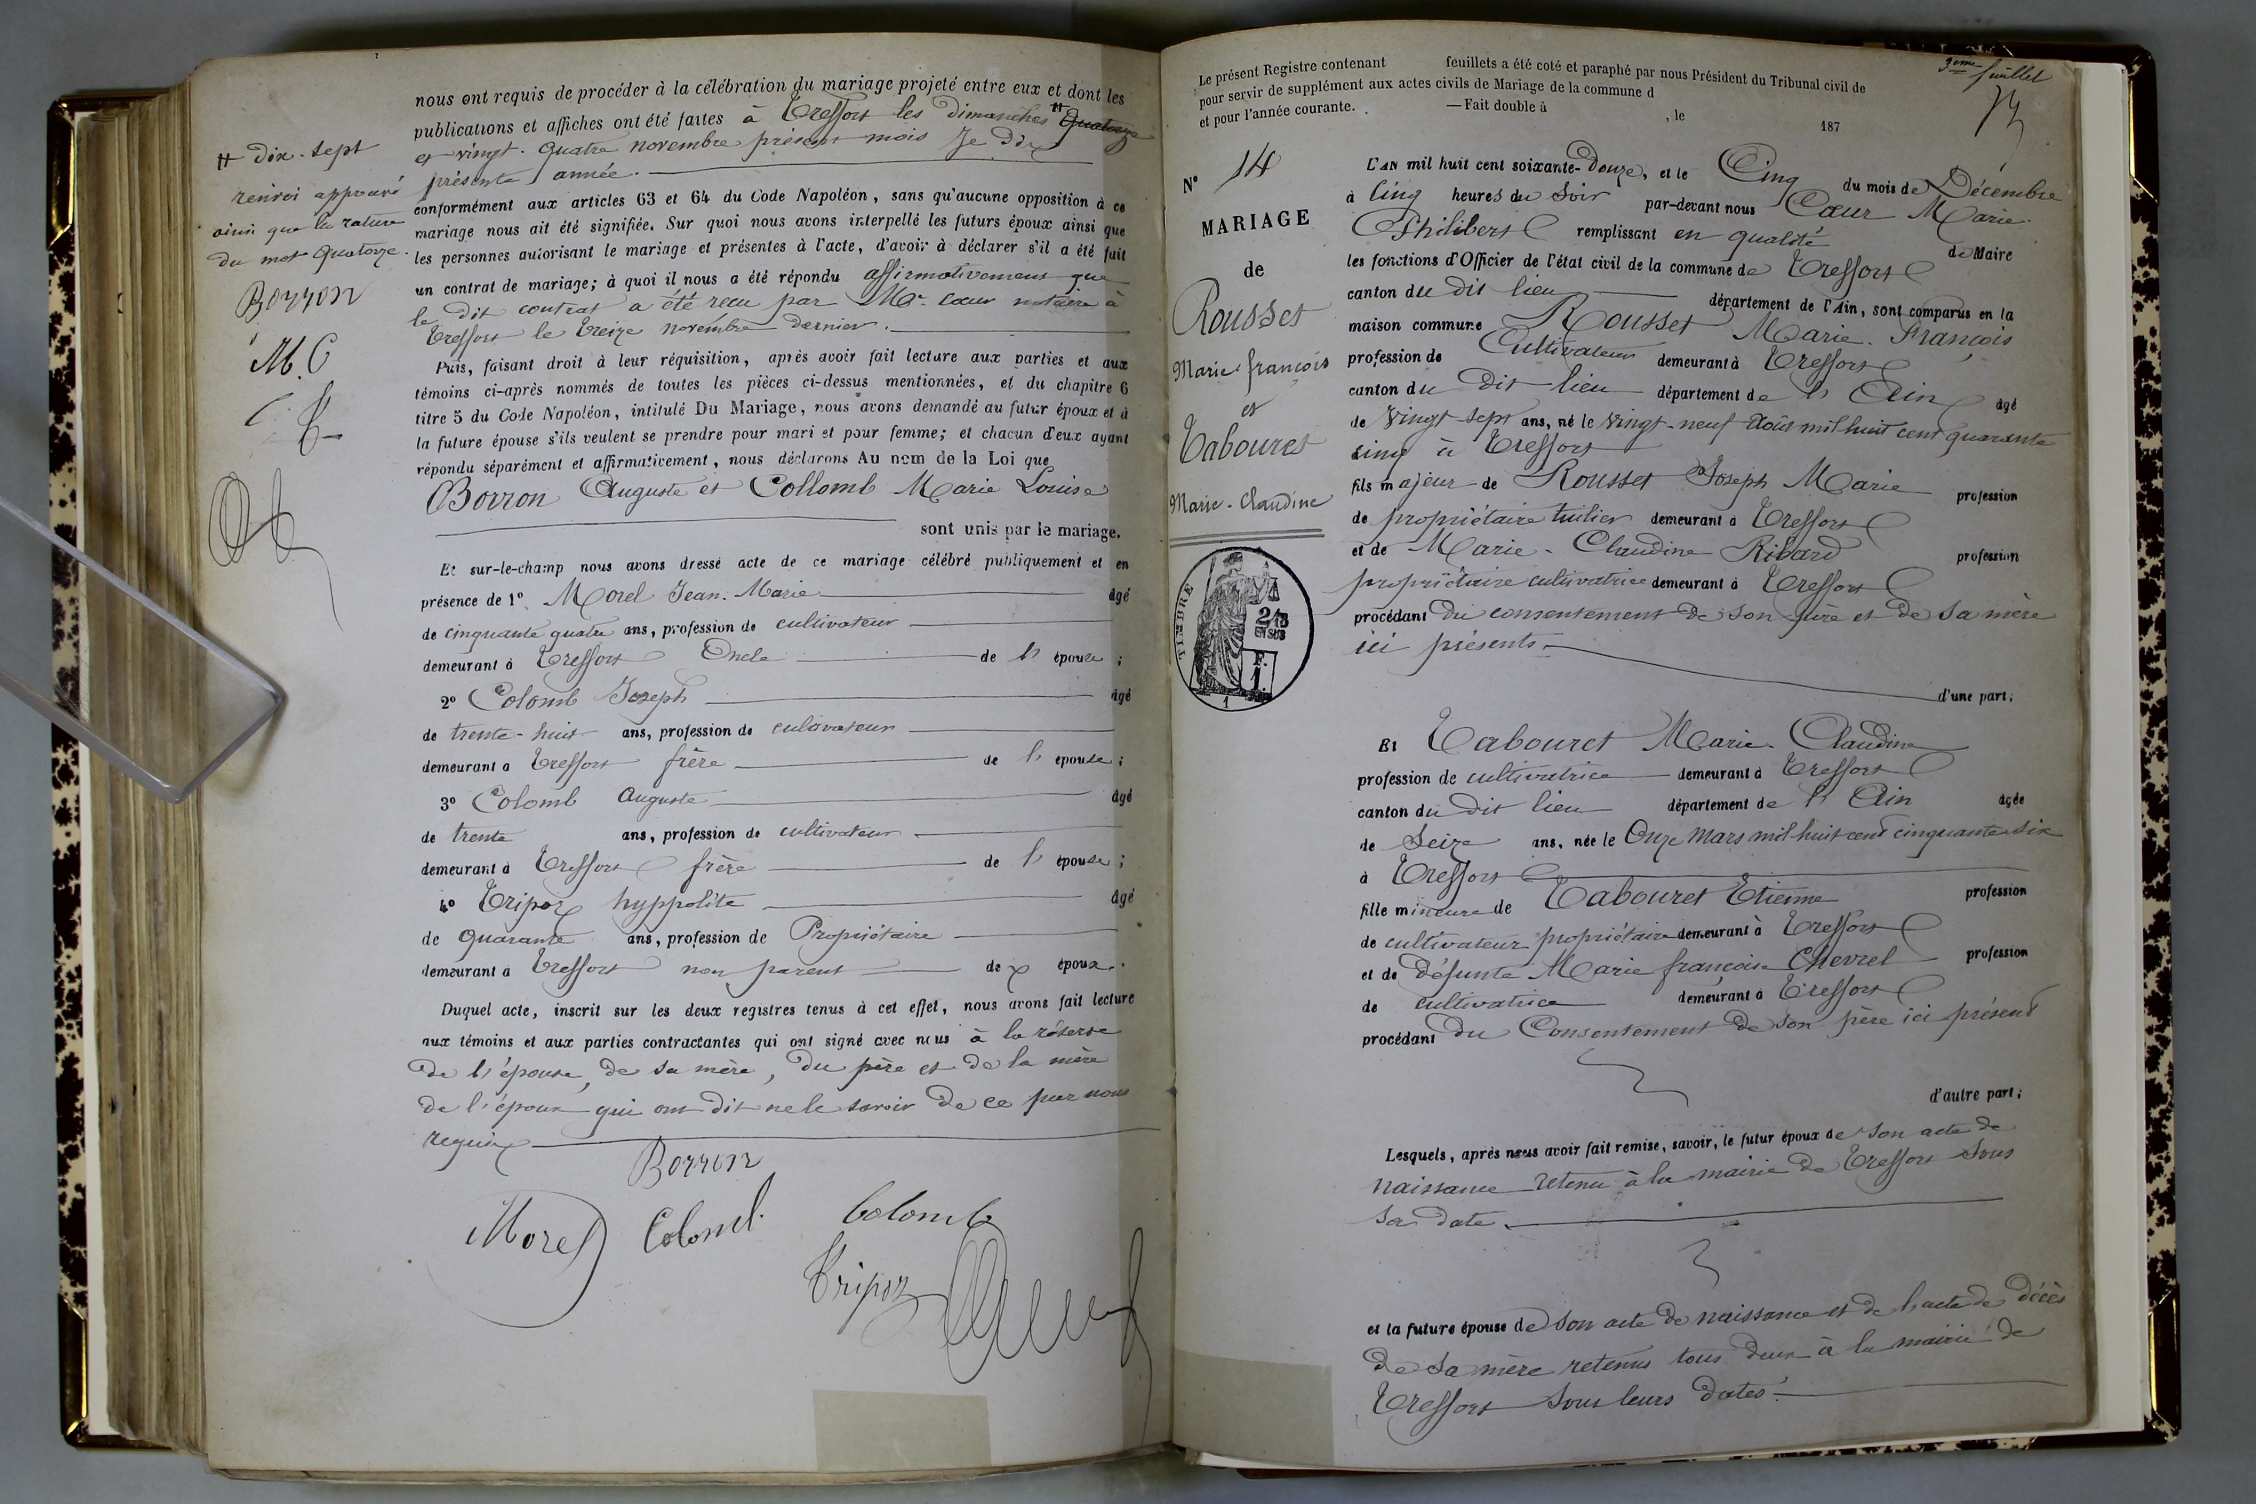 nous ont requis de procéder à la célébration du mariage projeté entre eux et dont les
publications et affiches ont été faites à Treffort les dimanches # Quatorze
et vingt-quatre novembre présent mois Je dix
présente année.
# Dix-sept
renvoi approuvé
ainsi que la rature
du mot Quatorze.
Borron
M. C
T
conformément aux articles 63 et 64 du Code Napoléon, sans qu'aucune opposition à ce
mariage nous ait été signifiée. Sur quoi nous avons interpellé les futurs époux ainsi que
les personnes autorisant le mariage et présentes à l'acte, d'avoir à déclarer s'il a été fait
un contrat de mariage; à quoi il nous a été répondu affirmativement que
le dit contrat a été reçu par Mr. Cœur notaire à
Treffort le treize novembre dernier.
Puis, faisant droit à leur réquisition, après avoir fait lecture aux parties et aux
témoins ci-après nommés de toutes les pièces ci-dessus mentionnées, et du chapitre 6
titre 5 du Code Napoléon, intitulé Du Mariage, nous avons demandé au futur époux et à
la future épouse s'ils veulent se prendre pour mari et pour femme; et chacun d'eux ayant
répondu séparément et affirmativement, nous déclarons Au nom de la Loi que
Borron Auguste et Collomb Marie Louise
sont unis par le mariage.
Et sur-le-champ nous avons dressé acte de ce mariage célébré publiquement et en
présence de 1o Morel Jean-Marie âgé
de cinquante quatre ans, profession de cultivateur
demeurant à Treffort Oncle de l' épouse;
2o Colomb Joseph âgé
de trente-huit ans, profession de cultivateur
demeurant à Treffort frère de l' épouse;
3o Colomb Auguste âgé
de trente ans, profession de cultivateur
demeurant à Treffort frère de l' épouse;
4o Tripoz hyppolite âgé
de quarante ans, profession de Propriétaire
demeurant à Treffort non parent de x époux.
Duquel acte, inscrit sur les deux registres tenus à cet effet, nous avons fait lecture
aux témoins et aux parties contractantes qui ont signé avec nous à la réserve
de l'épouse, de sa mère, du père et de la mère
de l'époux qui ont dit ne le savoir de ce par nous
requis
Borron
Morel Colomb Colomb
Tripoz
Le présent Registre contenant feuillets a été coté et paraphé par nous Président du Tribunal civil de
pour servir de supplément aux actes civils de Mariage de la commune d
et pour l'année courante. — Fait double à , le 187
9eme feuillet
No 14
MARIAGE
de
Rousset
Marie-françois
et
Tabouret
Marie-Claudine
TIMBRE
2/10
EN SUS
F.
1.
1
L'AN mil huit cent soixante-Douze, et le Cinq du mois de Décembre
à Cinq heures du Soir par-devant nous Cœur Marie
Philibert remplissant en qualité de Maire
les fonctions d'Officier de l'état civil de la commune de Treffort
canton du dit lieu département de l'Ain, sont comparus en la
maison commune Rousset Marie-François
profession de Cultivateur demeurant à Treffort
canton du dit lieu département de l' Ain âgé
de Vingt-sept ans, né le Vingt-neuf Août mil huit cent quarante
cinq à Treffort
fils majeur de Rousset Joseph Marie profession
de propriétaire tuilier demeurant à Treffort
et de Marie-Claudine Ribard profession
propriétaire cultivatrice demeurant à Treffort
procédant du consentement de son père et de sa mère
ici présents
d'une part;
Et Tabouret Marie-Claudine
profession de cultivatrice demeurant à Treffort
canton du dit lieu département de l' Ain âgée
de Seize ans, née le Onze Mars mil huit cent cinquante six
à Treffort
fille mineure de Tabouret Etienne profession
de cultivateur propriétaire demeurant à Treffort
et de défunte Marie françoise Chevrel profession
de cultivatrice demeurant à Treffort
procédant du Consentement de son père ici présent
d'autre part;
Lesquels, après nous avoir fait remise, savoir, le futur époux de son acte de
naissance retenu à la mairie de Treffort sous
sa date.
et la future épouse de son acte de naissance et de l'acte de décès
de sa mère retenus tous deux à la mairie de
Treffort sous leurs dates.